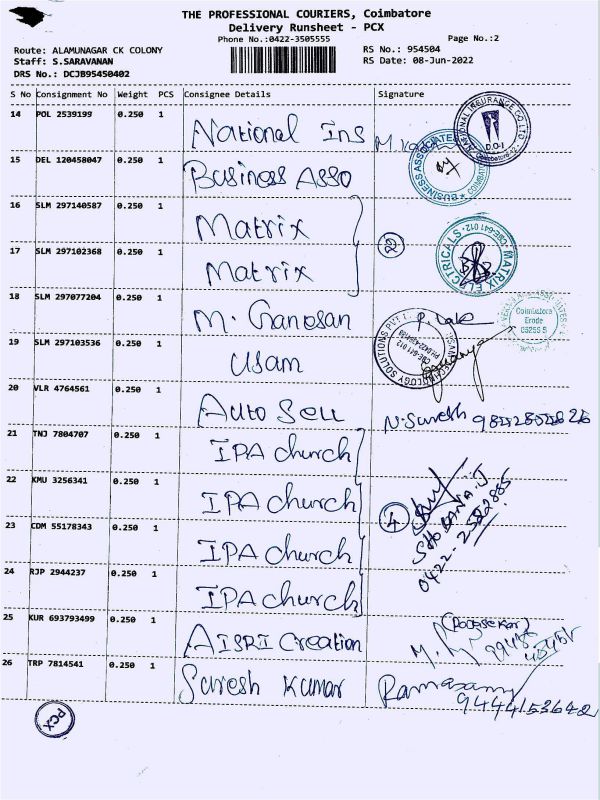 THE PROFESSIONAL COURIERS, Coimbatore
Delivery Runsheet - PCX
Phone No.:0422-3505555
Page No.:2
Route: ALAMUNAGAR CK COLONY
RS No.: 954504
Staff: S.SARAVANAN
RS Date: 08-Jun-2022
DRS No.: DCJB95450402
S No Consignment No Weight PCS Consignee Details Signature
14 POL 2539199 0.250 1 National Ins
15 DEL 120458047 0.250 1 Business Asso
16 SLM 297140587 0.250 1 Matrix
17 SLM 297102368 0.250 1 Matrix
MATRIX ELECTRICALS CBE-641 012
18 SLM 297077204 0.250 1 M. Ganesan
Coimbatore
Erode
19 SLM 297103536 0.250 1 Usam
20 VLR 4764561 0.250 1 Auto Seu N. Suresh
21 TNJ 7804707 0.250 1 IPA church
22 KMU 3256341 0.250 1 IPA church
4
SHOBANA.J
23 CDM 55178343 0.250 1 IPA church
24 RJP 2944237 0.250 1 IPA church
25 KUR 693793499 0.250 1 AISRI Creation
(Rajasekar)
26 TRP 7814541 0.250 1 Suresh Kumar Ramasamy
9444153642
PCX